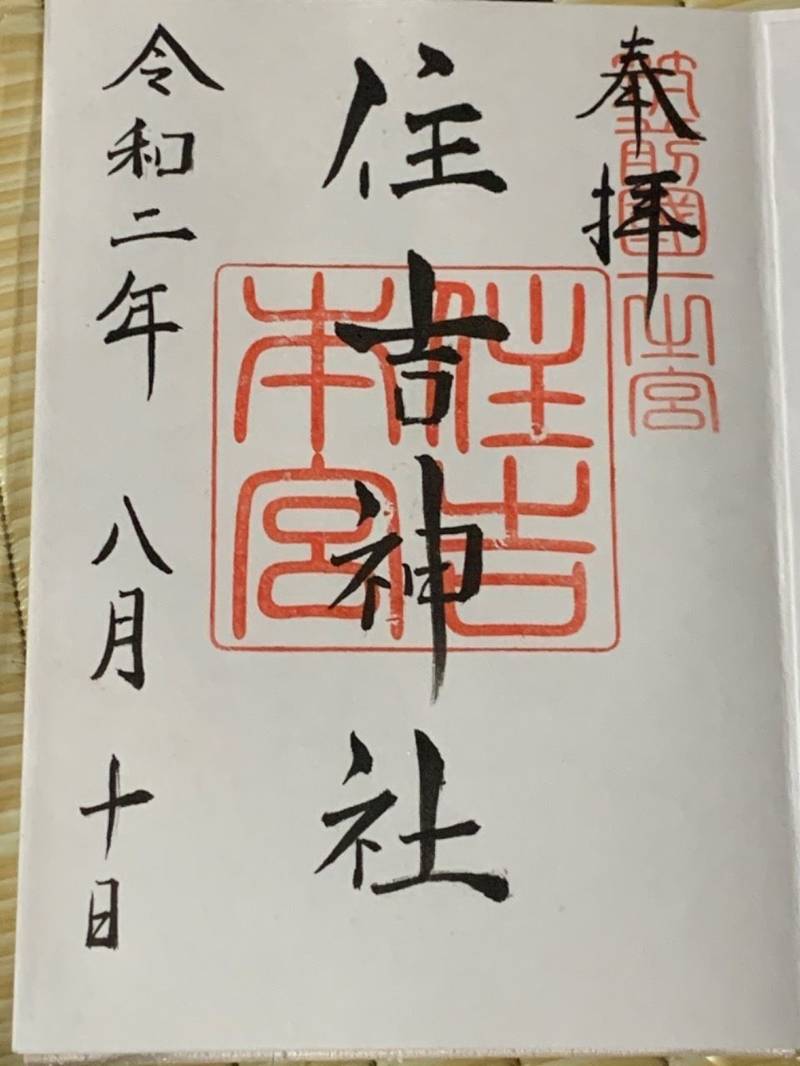 奉拝
筑前國一之宮
住吉神社
住吉本宮
令和二年 八月 十日